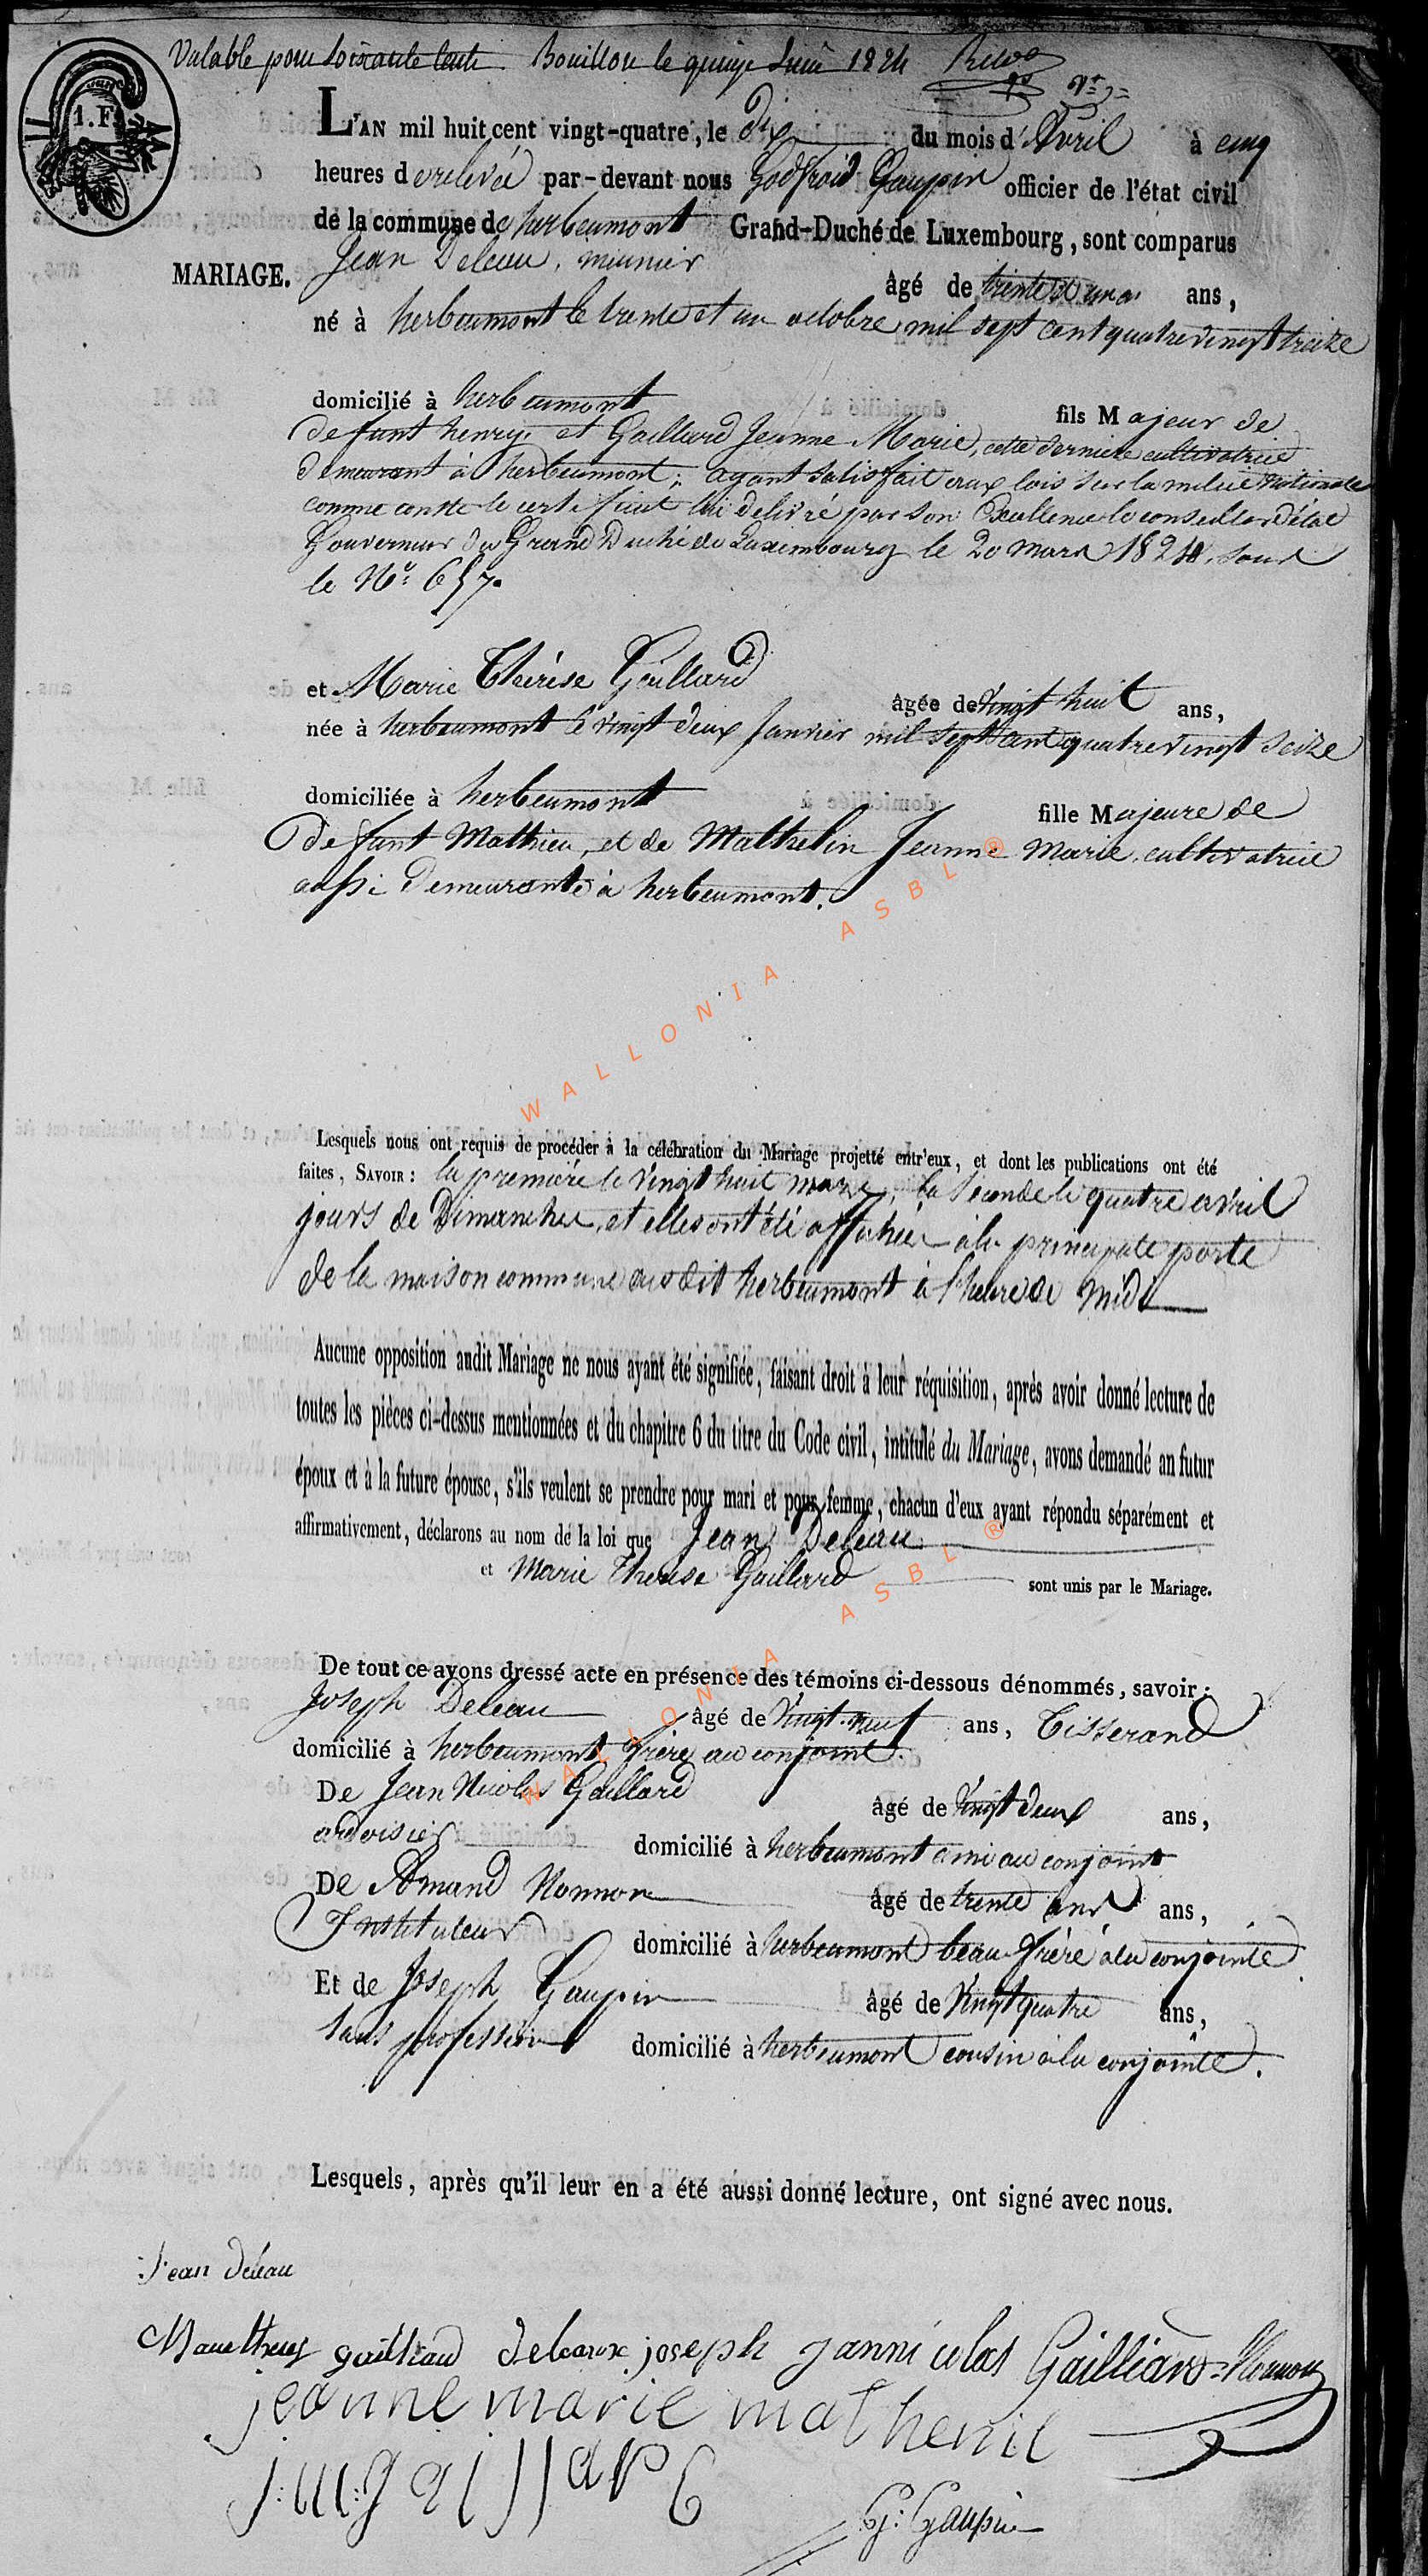 Valable pour soixante cents Bouillon le quinze Juin 1824
1. F.
L'AN mil huit cent vingt-quatre, le dix du mois d'Avril à cinq
heures de relevée par-devant nous Godfroid Gaupin officier de l'état civil
de la commune de herbeumont Grand-Duché de Luxembourg, sont comparus
MARIAGE.
Jean Deleau, meunier âgé de trente ans,
né à herbeumont le trente et un octobre mil sept cent quatre vingt treize
domicilié à herbeumont fils Majeur de
defunt henry et Gaillard Jeanne Marie, cette derniere cultivatrice
demeurant à herbeumont; ayant satisfait aux lois sur la milice nationale
comme conste le certificat lui delivré par son Excellence le conseiller d'état
Gouverneur du Grand Duché de Luxembourg le 20 mars 1824, sous
le No. 657.
et Marie Thérèse Gaillard âgée de vingt huit ans,
née à herbeumont le vingt deux Janvier mil sept cent quatre vingt seize
domiciliée à herbeumont fille Majeure de
Defunt Mathieu, et de Mathelin Jeanne Marie, cultivatrice
aussi demeurante à herbeumont.
Lesquels nous ont requis de procéder à la célébration du Mariage projetté entr'eux, et dont les publications ont été
faites, SAVOIR: la première le vingt huit mars, la seconde le quatre avril
jours de Dimanches, et elles ont été affichées à la principale porte
de la maison commune dudit herbeumont à l'heure de midi
Aucune opposition audit Mariage ne nous ayant été signifiée, faisant droit à leur réquisition, après avoir donné lecture de
toutes les pièces ci-dessus mentionnées et du chapitre 6 du titre du Code civil, intitulé du Mariage, avons demandé au futur
époux et à la future épouse, s'ils veulent se prendre pour mari et pour femme, chacun d'eux ayant répondu séparément et
affirmativement, déclarons au nom de la loi que Jean Deleau
et Marie Therese Gaillard sont unis par le Mariage.
De tout ce avons dressé acte en présence des témoins ci-dessous dénommés, savoir:
Joseph Deleau âgé de vingt neuf ans, Tisserand
domicilié à herbeumont frère au conjoint.
De Jean Nicolas Gaillard âgé de vingt deux ans,
ardoisier domicilié à herbeumont ami au conjoint
De Armand Nonnon âgé de trente ans,
Instituteur domicilié à herbeumont beau-frère à la conjointe
Et de Joseph Gaupin âgé de vingt quatre ans,
sans profession domicilié à herbeumont cousin à la conjointe.
Lesquels, après qu'il leur en a été aussi donné lecture, ont signé avec nous.
Jean deleau
Marie therese gailliard deleaux joseph jannicolas Gailliard Nonnon
jeanne marie mathenil
G: Gaupin
WALLONIA ASBL ®
WALLONIA ASBL ®